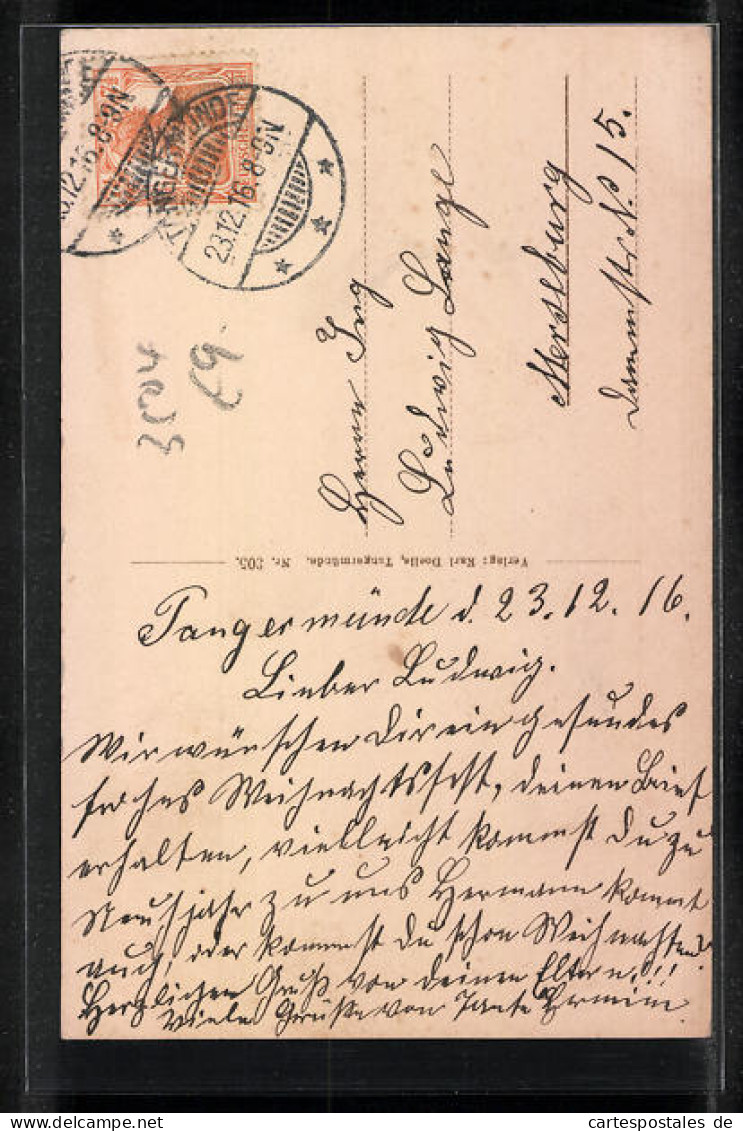 TANGERMÜNDE
23.12.16.8-9N
23.12.16.8-9N
Herrn Ing
Ludwig Lange
Merseburg
Dammstr. No 15.
Verlag: Karl Doelle, Tangermünde. Nr. 205.
Tangermünde d. 23.12.16.
Lieber Ludwig.
Wir wünschen Dir ein gesundes
frohes Weihnachtsfest, deinen Brief
erhalten, vielleicht kommst Du zu
Neujahr zu uns Hermann kommt
auch, oder kommst Du schon Weihnachten?
Herzlichen Gruß von deinen Eltern!!!
Viele Grüße von Tante Hermin
cartespostales de